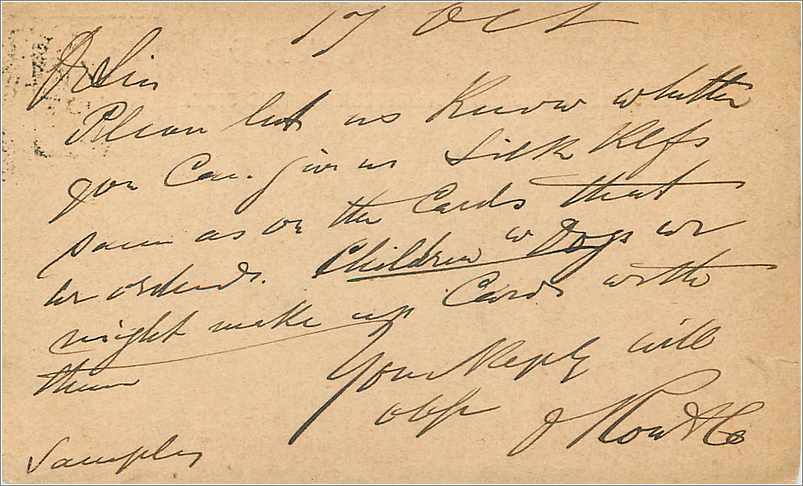 17 Oct
Dr Sir
Please let us Know whether
you Can give us Silk
same as on the Cards that
we ordered. Children w Dogs we
might make up Cards with
them
Your Reply will
oblige
J & Co
Samples